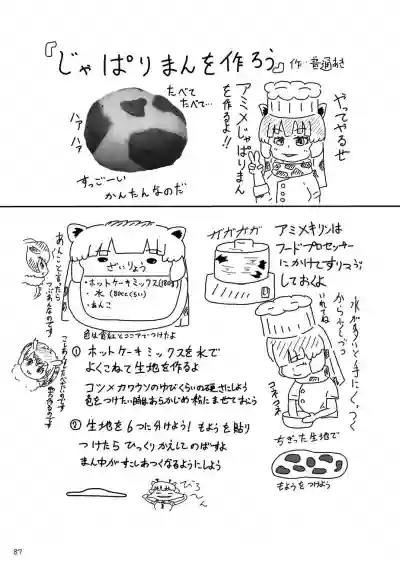 『じゃぱりまんを作ろう』
作・普通あき
やってやるぜ
アミメじゃぱりまん
を作るよ!!
たべて
たべて…
ハァ
ハァ
すっごーい
かんたんなのだ
ガガガガ
アミメキリンは
フードプロセッサー
にかけてすりつぶ
しておくよ
ざいりょう
・ホットケーキミックス(180g)
・水(80ccくらい)
・あんこ
色は食紅とココアでつけたよ
あんこと言ったら
つぶあんなのです
水が多いと手にくっつく
から少しづつ
いれてね
コネコネ
① ホットケーキミックスを水で
よくこねて生地を作るよ
コツメカワウソのゆびくらいの硬さにしよう
色をつけたい時はあらかじめ粉にまぜておこう
② 生地を6つに分けよう!もようを貼り
つけたらひっくりかえしてのばすよ
まん中がすこしあつくなるようにしよう
ちぎった生地で
もようをつけよう
びろ〜ん
87